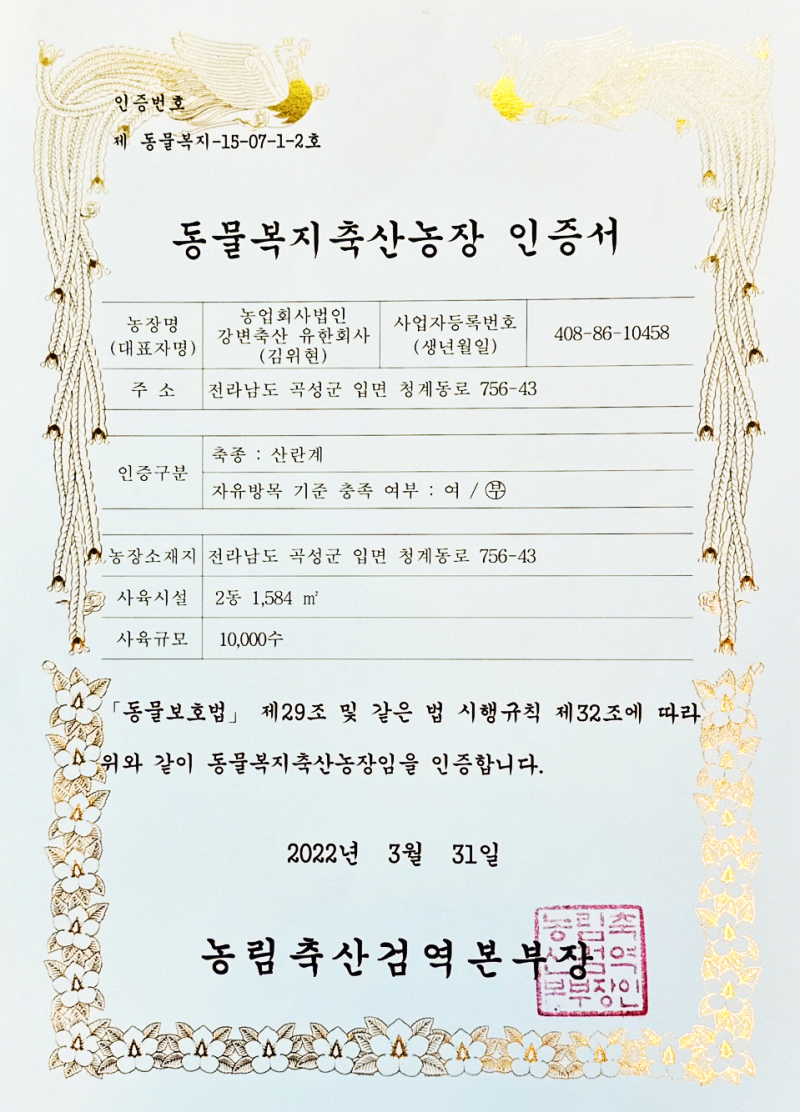 인증번호
제 동물복지-15-07-1-2호
동물복지축산농장 인증서
농장명
(대표자명)
농업회사법인
강변축산 유한회사
(김위현)
사업자등록번호
(생년월일)
408-86-10458
주 소
전라남도 곡성군 입면 청계동로 756-43
인증구분
축종 : 산란계
자유방목 기준 충족 여부 : 여 / 부
농장소재지
전라남도 곡성군 입면 청계동로 756-43
사육시설
2동 1,584 ㎡
사육규모
10,000수
「동물보호법」 제29조 및 같은 법 시행규칙 제32조에 따라
위와 같이 동물복지축산농장임을 인증합니다.
2022년 3월 31일
농림축산검역본부장
농림축
산검역
본부장인